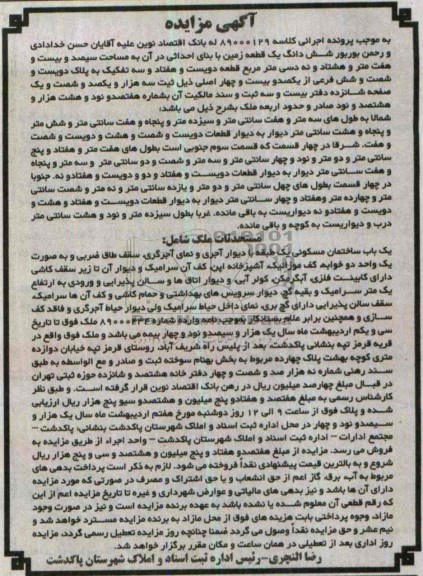 آگهی مزایده
به موجب پرونده اجرائی کلاسه ۸۹۰۰۰۱۲۹ له بانک اقتصاد نوین علیه آقایان حسن خدادادی
و رحمن بوربور شش دانگ یک قطعه زمین با بنای احداثی در آن به مساحت سیصد و بیست و
هفت متر و هشتاد و نه دسی متر مربع قطعه دویست و هفتاد و سه تفکیک به پلاک دویست و
شصت و شش فرعی از یکصدو بیست و چهار اصلی ذیل ثبت سه هزار و یکصد و شصت و یک
صفحه شانزده دفتر بیست و سه ثبت و سند مالکیت آن بشماره هفتصدو نود و هشت هزار و
هشتصد و نود صادر و حدود اربعه ملک بشرح ذیل می باشد:
شمالا به طول های سه متر و هفت سانتی متر و سیزده متر و پنجاه و هفت سانتی متر و شش متر
و پنجاه و هشت سانتی متر دیوار به دیوار قطعات دویست و شصت و هشت و دویست و شصت
و هفت. شرقا در چهار قسمت که قسمت سوم جنوبی است بطول های هفت متر و هفتاد و پنج
سانتی متر و دو متر و نود و چهار سانتی متر و سه متر و شصت و دو سانتی متر و سه متر و پنجاه
و هفت سانتی متر دیوار به دیوار قطعات دویست و هفتاد و دو و دویست و هفتادو نه. جنوبا
در چهار قسمت بطول های چهل سانتی متر و دو متر و یازده سانتی متر و نه متر و شصت سانتی
متر و چهارده متر وهفتاد و چهار سانتی متر دیوار به دیوار قطعات دویست و هفتاد و هشت و
دویست و هفتادو نه دیواریست به باقی مانده. غربا بطول سیزده متر و نود و هشت سانتی متر
درب و دیواریست به کوچه و باقی مانده.
مستحدثات ملک شامل:
یک باب ساختمان مسکونی یک طبقه با دیوار آجری و نمای آجرگری، سقف طاق ضربی و به صورت
یک واحد دو خوابه، کف موزائیک، آشپزخانه اپن، کف آن سرامیک و دیوار آن تا زیر سقف کاشی
دارای کابینت فلزی، آبگرمکن، کولر آبی، و دیوار اتاق ها و سالن پذیرایی و ورودی به ارتفاع
یک متر سرامیک و بقیه گچ، دیوار سرویس های بهداشتی و حمام کاشی و کف آن ها سرامیک،
سقف سالن پذیرایی دارای گچ بری، نمای داخل حیاط سرامیک ولی دیوار حیاط آجرگری و فاقد کف
سازی و همچنین برابر اعلام بستانکار بموجب نامه وارده شماره ملک فوق تا تاریخ
سی و یکم اردیبهشت ماه سال یک هزار و سیصدو نود و چهار بیمه می باشد و ملک فوق واقع در
قریه قرمز تپه بنشانی پاکدشت، بعد از پلیس راه شریف آباد، روستای قرمز تپه خیابان دوازده
متری کوچه بهشت پلاک چهارده مربوط به بخش بهنام سوخته ثبت و صادر و مع الواسطه به طبق
سند رهنی شماره نه هزار صد و شصت و چهار دفتر خانه هشتصد و شانزده حوزه ثبتی تهران
در قبال مبلغ چهارصد میلیون ریال در رهن بانک اقتصاد نوین قرار گرفته است. و طبق نظر
کارشناس رسمی به مبلغ هفتصد و هفتادو پنج میلیون و هشتصدو سیو پنج هزار ریال ارزیابی
شده و پلاک فوق از ساعت ۹ الی ۱۲ روز دوشنبه مورخ هفتم اردیبهشت ماه سال یک هزار و
سیصدو نود و چهار در محل اداره ثبت اسناد و املاک شهرستان پاکدشت بنشانی: پاکدشت –
مجتمع ادارات – اداره ثبت اسناد و املاک شهرستان پاکدشت – واحد اجراء از طریق مزایده به
فروش می رسد. مزایده از مبلغ هفتصدو هفتاد و پنج میلیون و هشتصد و سی و پنج هزار ریال
شروع و به بالاترین قیمت پیشنهادی نقداً فروخته می شود. لازم به ذکر است پرداخت بدهی های
مربوط به آب، برق، گاز اعم از حق انشعاب و یا حق اشتراک و مصرف در صورتی که مورد مزایده
دارای آن ها باشد و نیز بدهی های مالیاتی و عوارض شهرداری و غیره تا تاریخ مزایده اعم از این
که رقم قطعی آن معلوم شده یا نشده باشد به عهده برنده مزایده است و نیز در صورت وجود
مازاد، وجوه پرداختی بابت هزینه های فوق از محل مازاد به برنده مزایده مسترد خواهد شد و
نیم عشر و حق مزایده نقداً وصول می گردد ضمنا چنانچه روز مزایده تعطیل رسمی گردد، مزایده
روز اداری بعد از تعطیلی در همان ساعت و مکان مقرر برگزار خواهد شد.
رضا النجری-رئیس اداره ثبت اسناد و املاک شهرستان پاکدشت